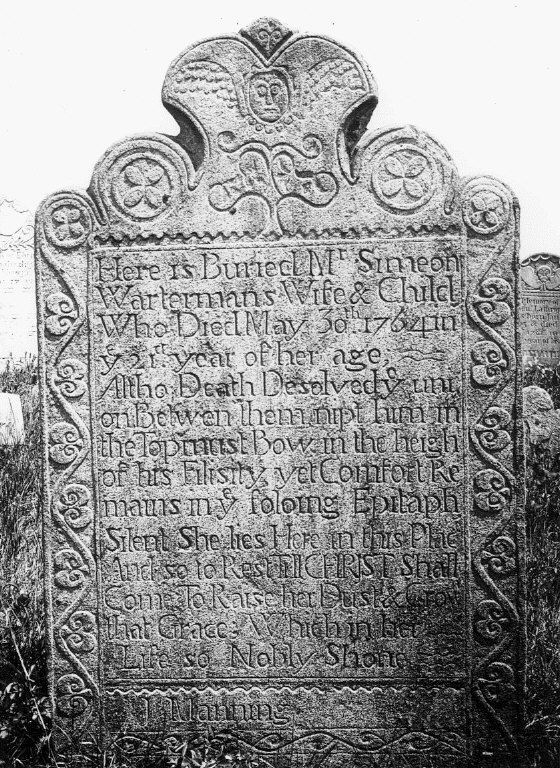 Here is Buried Mr Simeon
Wartermans Wife & Child,
Who Died May 30th 1764 in
ye 21st year of her age,
Altho Death Desolved ye uni,
on Betwen them, nipt him in
the Topmust Bow in the heigh
of his Filisity, yet Comfort Re
mains in ye foloing Epitaph
Silent She lies Here in this Plac
And so to Rest till CHRIST Shall
Come To Raise her Dust & Crow
that Grace, Which in her
Life so Nobly Shone
J Manning